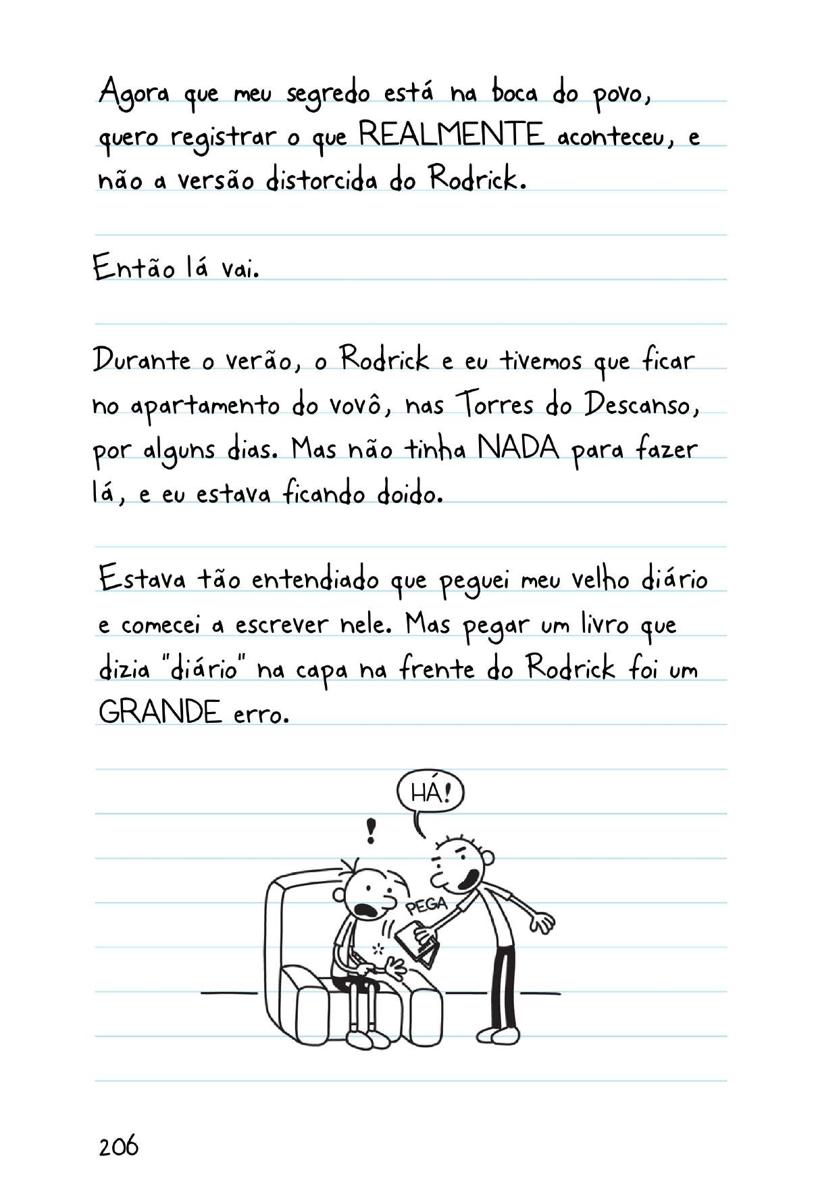 Agora que meu segredo está na boca do povo,
quero registrar o que REALMENTE aconteceu, e
não a versão distorcida do Rodrick.
Então lá vai.
Durante o verão, o Rodrick e eu tivemos que ficar
no apartamento do vovô, nas Torres do Descanso,
por alguns dias. Mas não tinha NADA para fazer
lá, e eu estava ficando doido.
Estava tão entendiado que peguei meu velho diário
e comecei a escrever nele. Mas pegar um livro que
dizia "diário" na capa na frente do Rodrick foi um
GRANDE erro.
HÁ!
!
PEGA
206